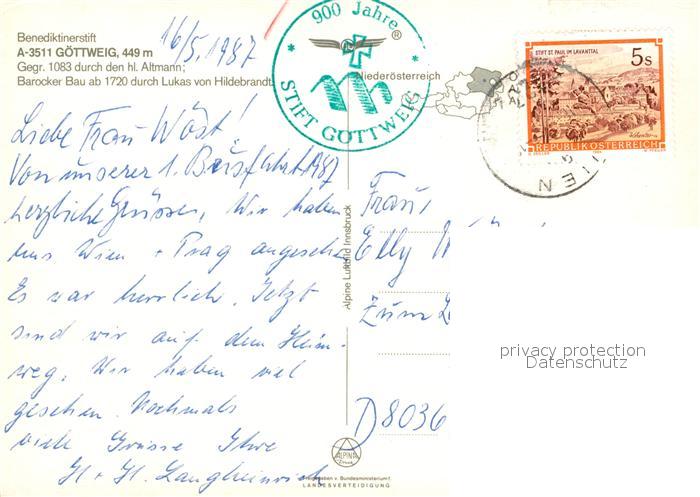 Benediktinerstift
A-3511 GÖTTWEIG, 449 m
Gegr. 1083 durch den hl. Altmann;
Barocker Bau ab 1720 durch Lukas von Hildebrandt
16/5. 1987
900 Jahre
®
STIFT GÖTTWEIG
Niederösterreich
STIFT ST. PAUL IM LAVANTTAL
5 s
REPUBLIK ÖSTERREICH
WIEN
Liebe Frau Wöst!
Von unserer 1. Busfahrt 1987
herzliche Grüsse, Wir haben
uns Wien + Prag angesehen
Es war herrlich. Jetzt
sind wir auf dem Heim-
weg. Wir haben viel
gesehen. Nochmals
viele Grüsse Ihre
H. + H. Langheinrich
Alpine Luftbild Innsbruck
Frau
Elly
Zum
D 8036
privacy protection
Datenschutz
ALPINA
Freigegeben v. Bundesministerium f.
LANDESVERTEIDIGUNG